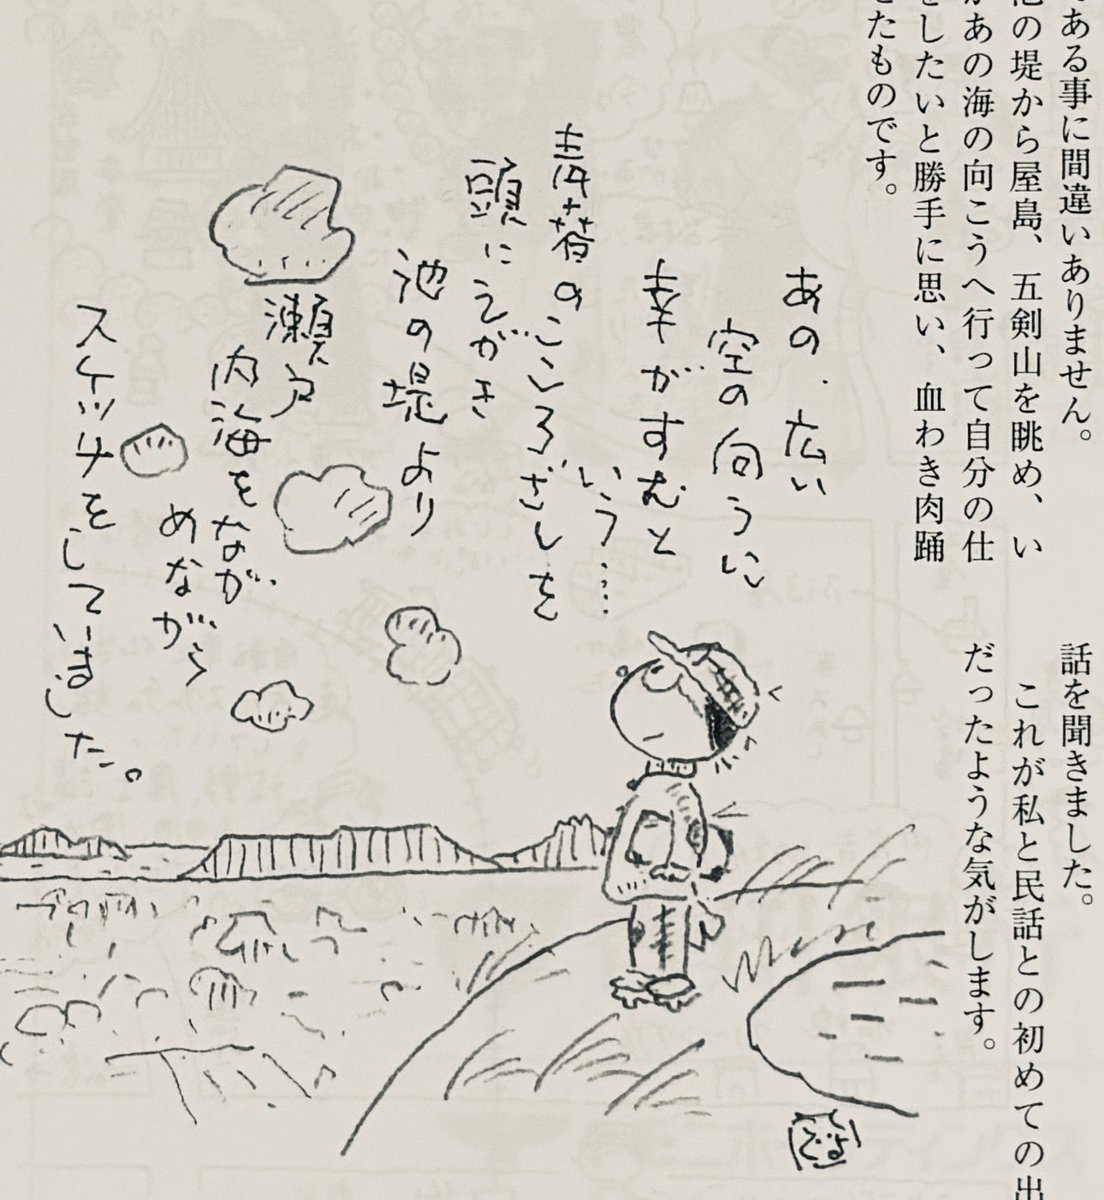 ある事に間違いありません。
の堤から屋島、五剣山を眺め、い
あの海の向こうへ行って自分の仕
をしたいと勝手に思い、血わき肉踊
たものです。
話を聞きました。
これが私と民話との初めての出
だったような気がします。
あの、広い
空の向うに
幸がすむと
いう…
のこころざしを
頭にえがき
池の堤より
瀬戸
内海をなが
めながら
スケッチをしていました。